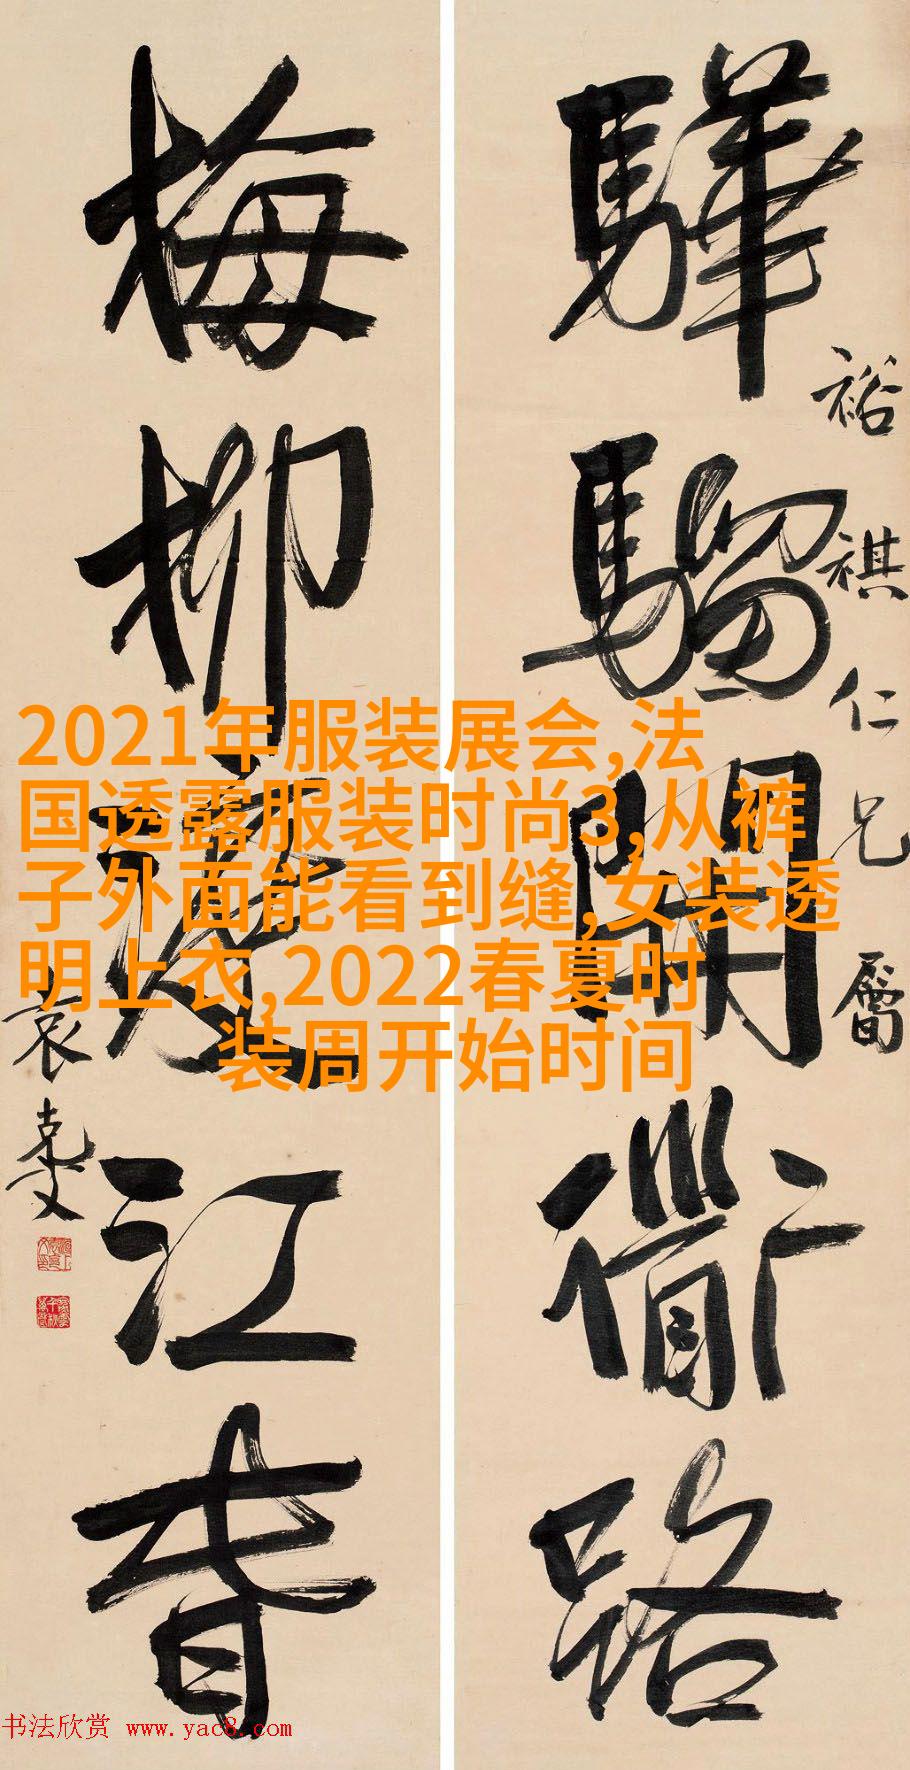 驊騮開道路
裕祺仁兄屬
梅柳渡江春
袁克文
2021年服装展会,法
国透露服装时尚3,从裤
子外面能看到缝,女装透
明上衣,2022春夏时
装周开始时间
书法欣赏 www.yac8.com